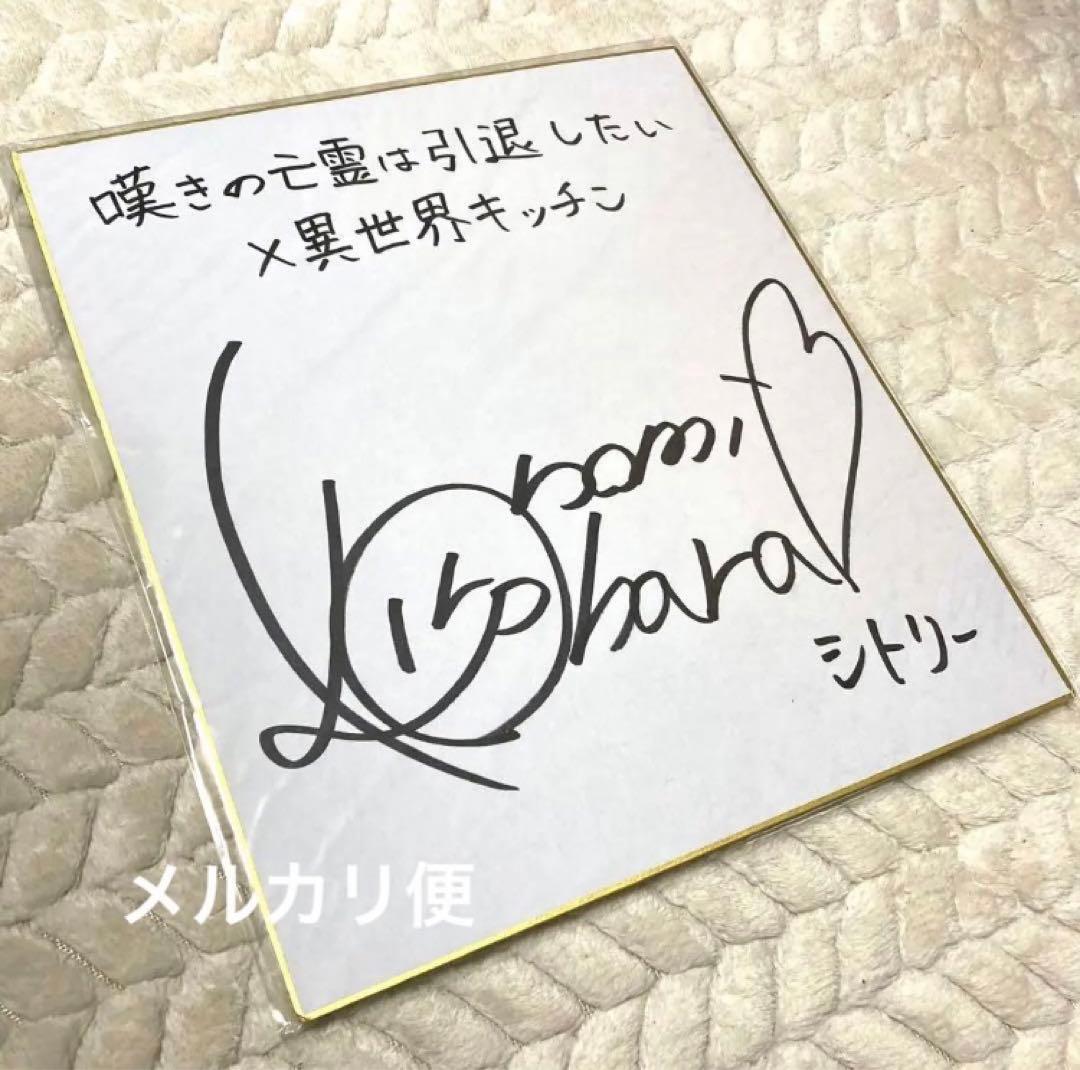 嘆きの亡霊は引退したい
×異世界キッチン
Konomi
Kohara
シトリー
メルカリ便